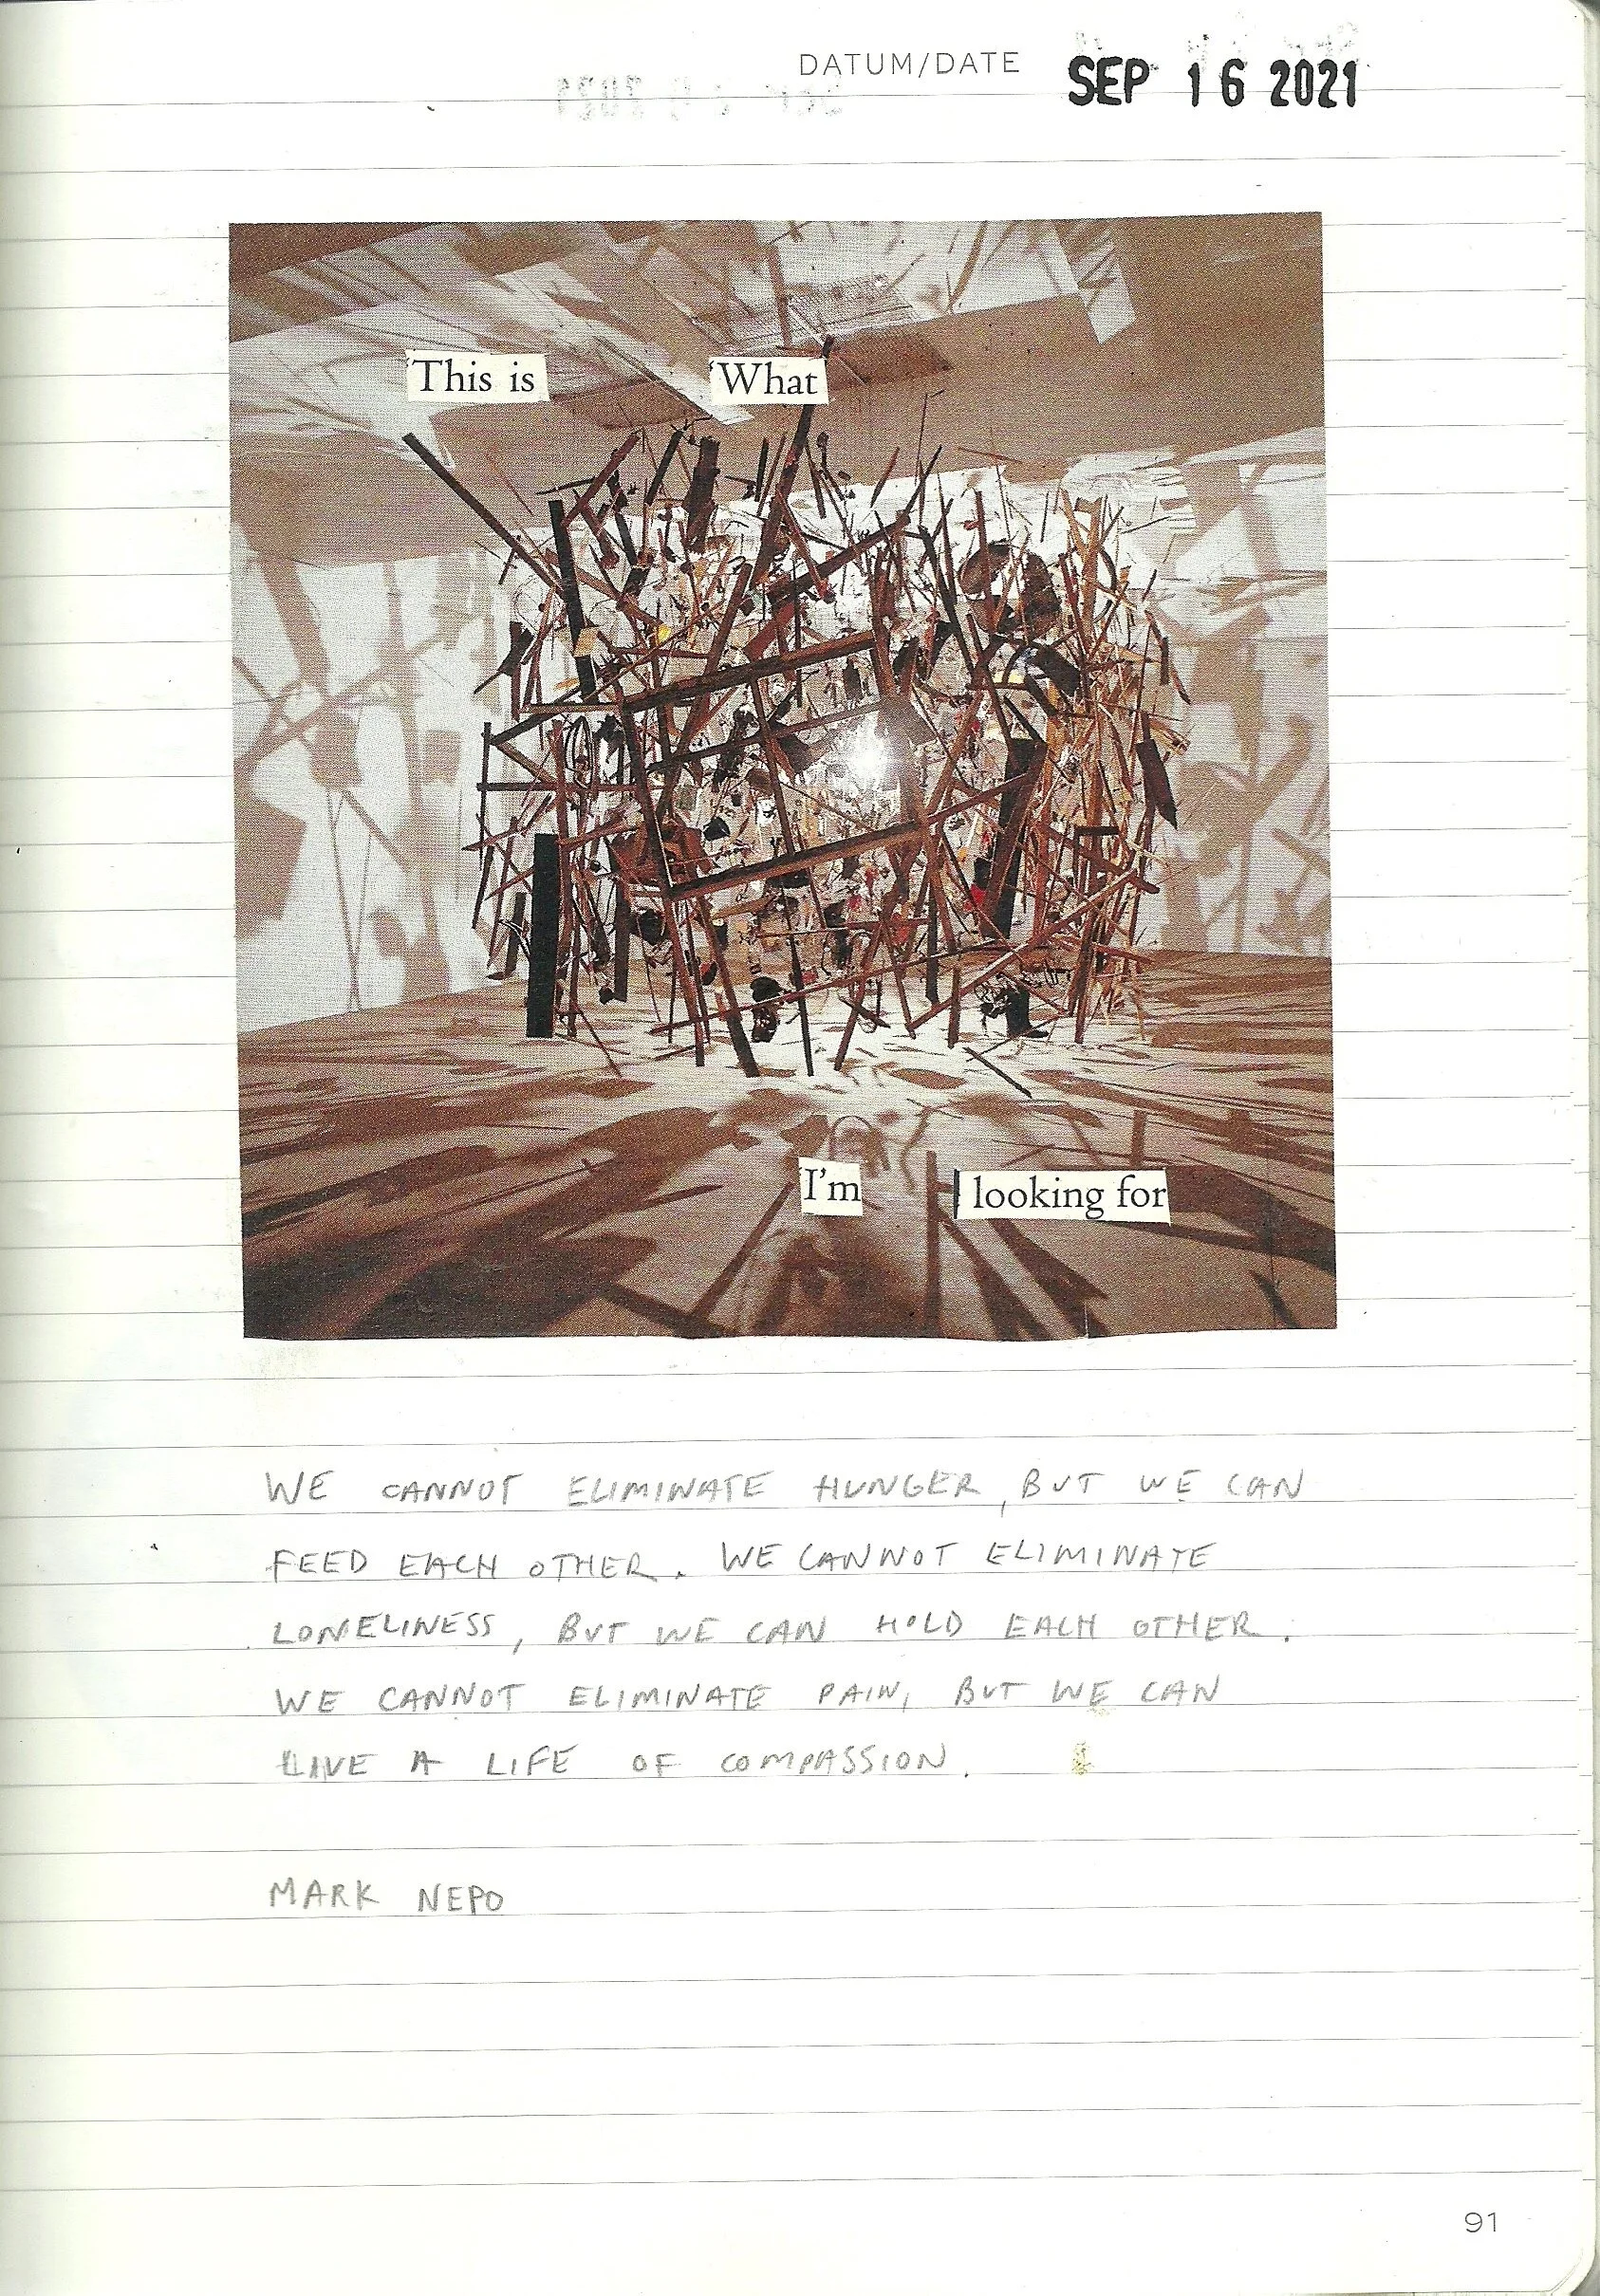 DATUM/DATE SEP 16 2021
This is What
I'm looking for
WE CANNOT ELIMINATE HUNGER, BUT WE CAN
FEED EACH OTHER. WE CANNOT ELIMINATE
LONELINESS, BUT WE CAN HOLD EACH OTHER.
WE CANNOT ELIMINATE PAIN, BUT WE CAN
LIVE A LIFE OF COMPASSION.
MARK NEPO
91